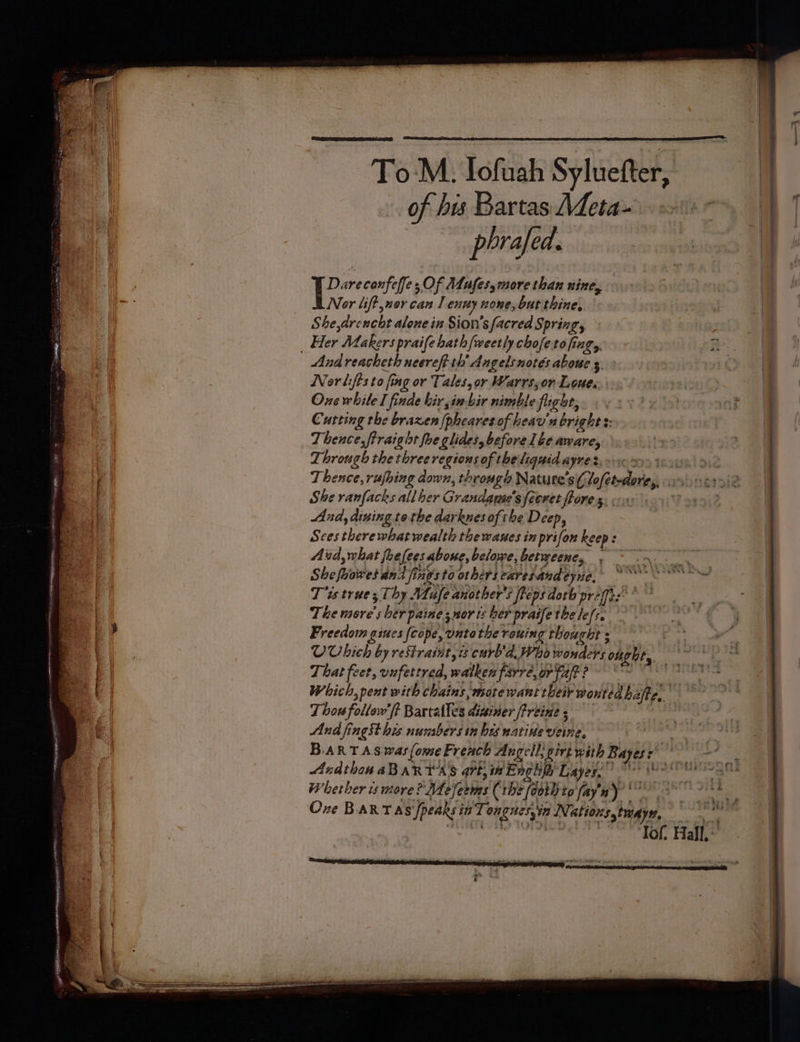 To M. Iosuah Syluester,
of his Bartas Meta-
phrased.
I Dare confesse, Of Muses, more than nine,
Nor list, nor can I enuy none, but thine.
She, drencht alone in Sion's sacred Spring,
Her Makers praise hath sweetly chose to sing,
And reacheth neerest th' Angels notes aboue;
Nor lists to sing or Tales, or Warrs, or Loue.
One while I finde hir, in hir nimble flight,
Cutting the brazen spheares of heau'n bright:
Thence, straight she glides, before I be aware,
Through the three regions of the liquid ayre:
Thence, rushing down, through Nature's Closet-dore,
She ransacks all her Grandame's secret store;
And, diuing to the darknes of the Deep,
Sees there what wealth the waues in prison keep:
And, what she sees aboue, belowe, betweene,
She showes and sings to others eares and eyne.
T'is true; Thy Muse another's steps doth presse:
The more's her paine; nor is her praise the less.
Freedom giues scope, vnto the rouing thought;
VVhich by restraint, is curb'd. Who wonders ought,
That feet, vnfettred, walken farre, or fast?
Which, pent with chains, mote want their wonted haste.
Thou follow'st Bartasses diuiner streine;
And singst his numbers in his natiue veine.
BARTAS was some French Angell, girt with Bayes:
And thou a BARTAS art, in English Layes.
Whether is more? Me seems (the sooth to say'n)
One BARTAS speaks in Tongues, in Nations, twayn.
Ios. Hall.